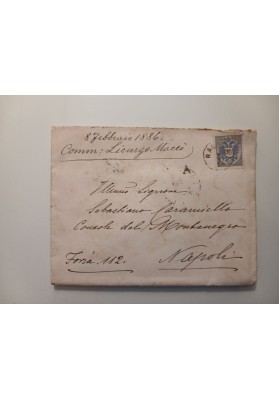 8 Febbraro 1886.
Comm: Licurgo Macciò
RA
A
Illmo Signore
Sebastiano Jaramiello
Console del Montenegro
Foria 112.
Napoli